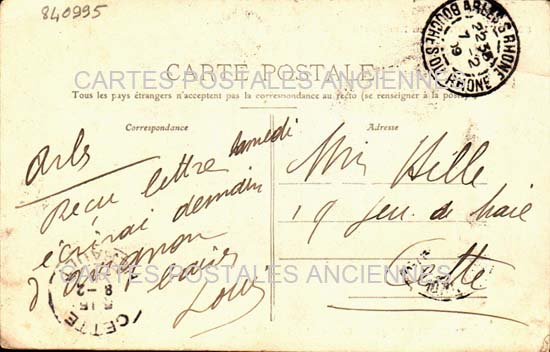 840995
ARLES S RHONE
22 35
7 -2
19
BOUCHES-DU-RHONE
CARTE POSTALE
CARTES POSTALES ANCIENNES
Tous les pays étrangers n'acceptent pas la correspondance au recto (se renseigner à la poste)
Correspondance
Adresse
Arles
Recu lettre samedi
écrirai demain
d'Avignon
baisers
Louis
CETTE
5 15
8 -2
HERAULT
Hille
19
de
Cette
CARTES POSTALES ANCIENNES